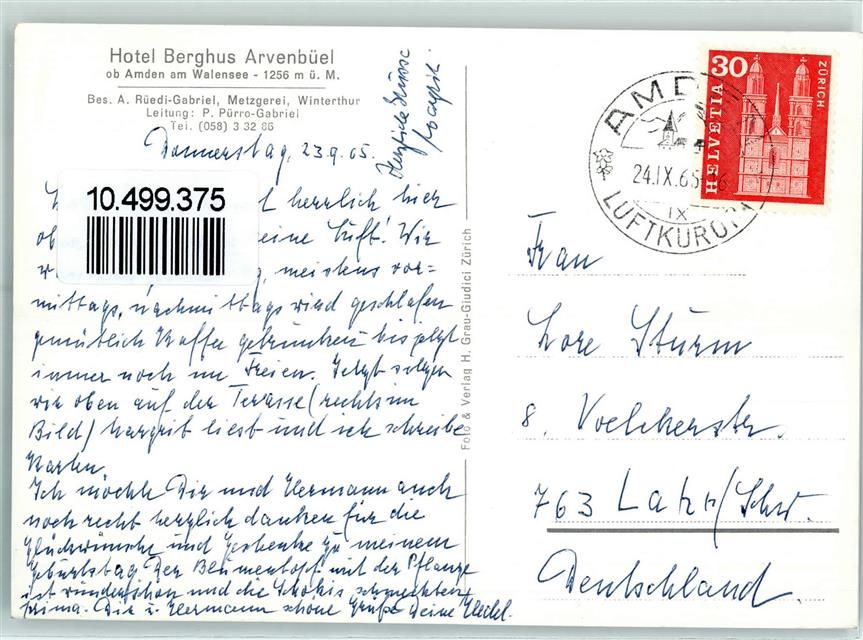 Hotel Berghus Arvenbüel
ob Amden am Walensee - 1256 m ü. M.
Bes. A. Rüedi-Gabriel, Metzgerei, Winterthur
Leitung: P. Pürro-Gabriel
Tel. (058) 3 32 86
Donnerstag, 23.9.65.
herrlich hier
ob eine Luft! Wir
meistens vor=
mittags, nachmittags wird geschlafen
gemütlich Kaffee getrunken bis jetzt
immer noch im Freien. Jetzt sitzen
wir oben auf der Terasse (rechts im
Bild) Margrit liest und ich schreibe
Karten.
Ich möchte Dir und Hermann auch
noch recht herzlich danken für die
Glückwünsche und Geschenke zu meinem
Geburtstag. Der Blumentopf mit der Pflanze
ist wunderschön und die Schokis schmeckten
prima. Dir u. Hermann schöne Grüße Deine
Herzliche Grüsse
Margrit.
10.499.375
Foto & Verlag H. Grau-Giudici Zürich
30
HELVETIA
ZÜRICH
AMDEN
24.IX.65-16
IX
LUFTKURORT
Frau
Lore Sturm
8. Voelckerstr.
763 Lahr/Schw.
Deutschland.